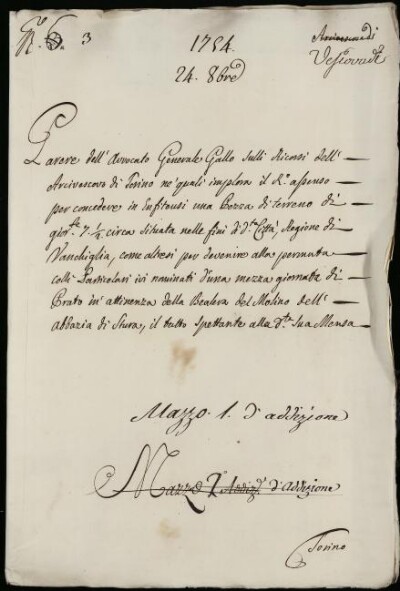 N.º 3
1754.
24. 8bre
Arcivescovadi
Vescovadi
Parere dell' Avvocato Generale Gallo sulli Ricorsi dell'
Arcivescovo di Torino ne' quali implora il R.º assenso
per concedere in Enfiteusi una Pezza di terreno di
gior.te 7. 1/4 circa situata nelle fini di q.ta Città, Regione di
Vanchiglia, come altresi per devenire alla permuta
colli Particolari ivi nominati d'una mezza giornata di
Prato in' attinenza della Bealera del Molino dell'
abbazia di Stura, il tutto spettante alla d.ta Sua Mensa
Mazzo. 1. d' addizione
Mazzo d'addizione
Torino